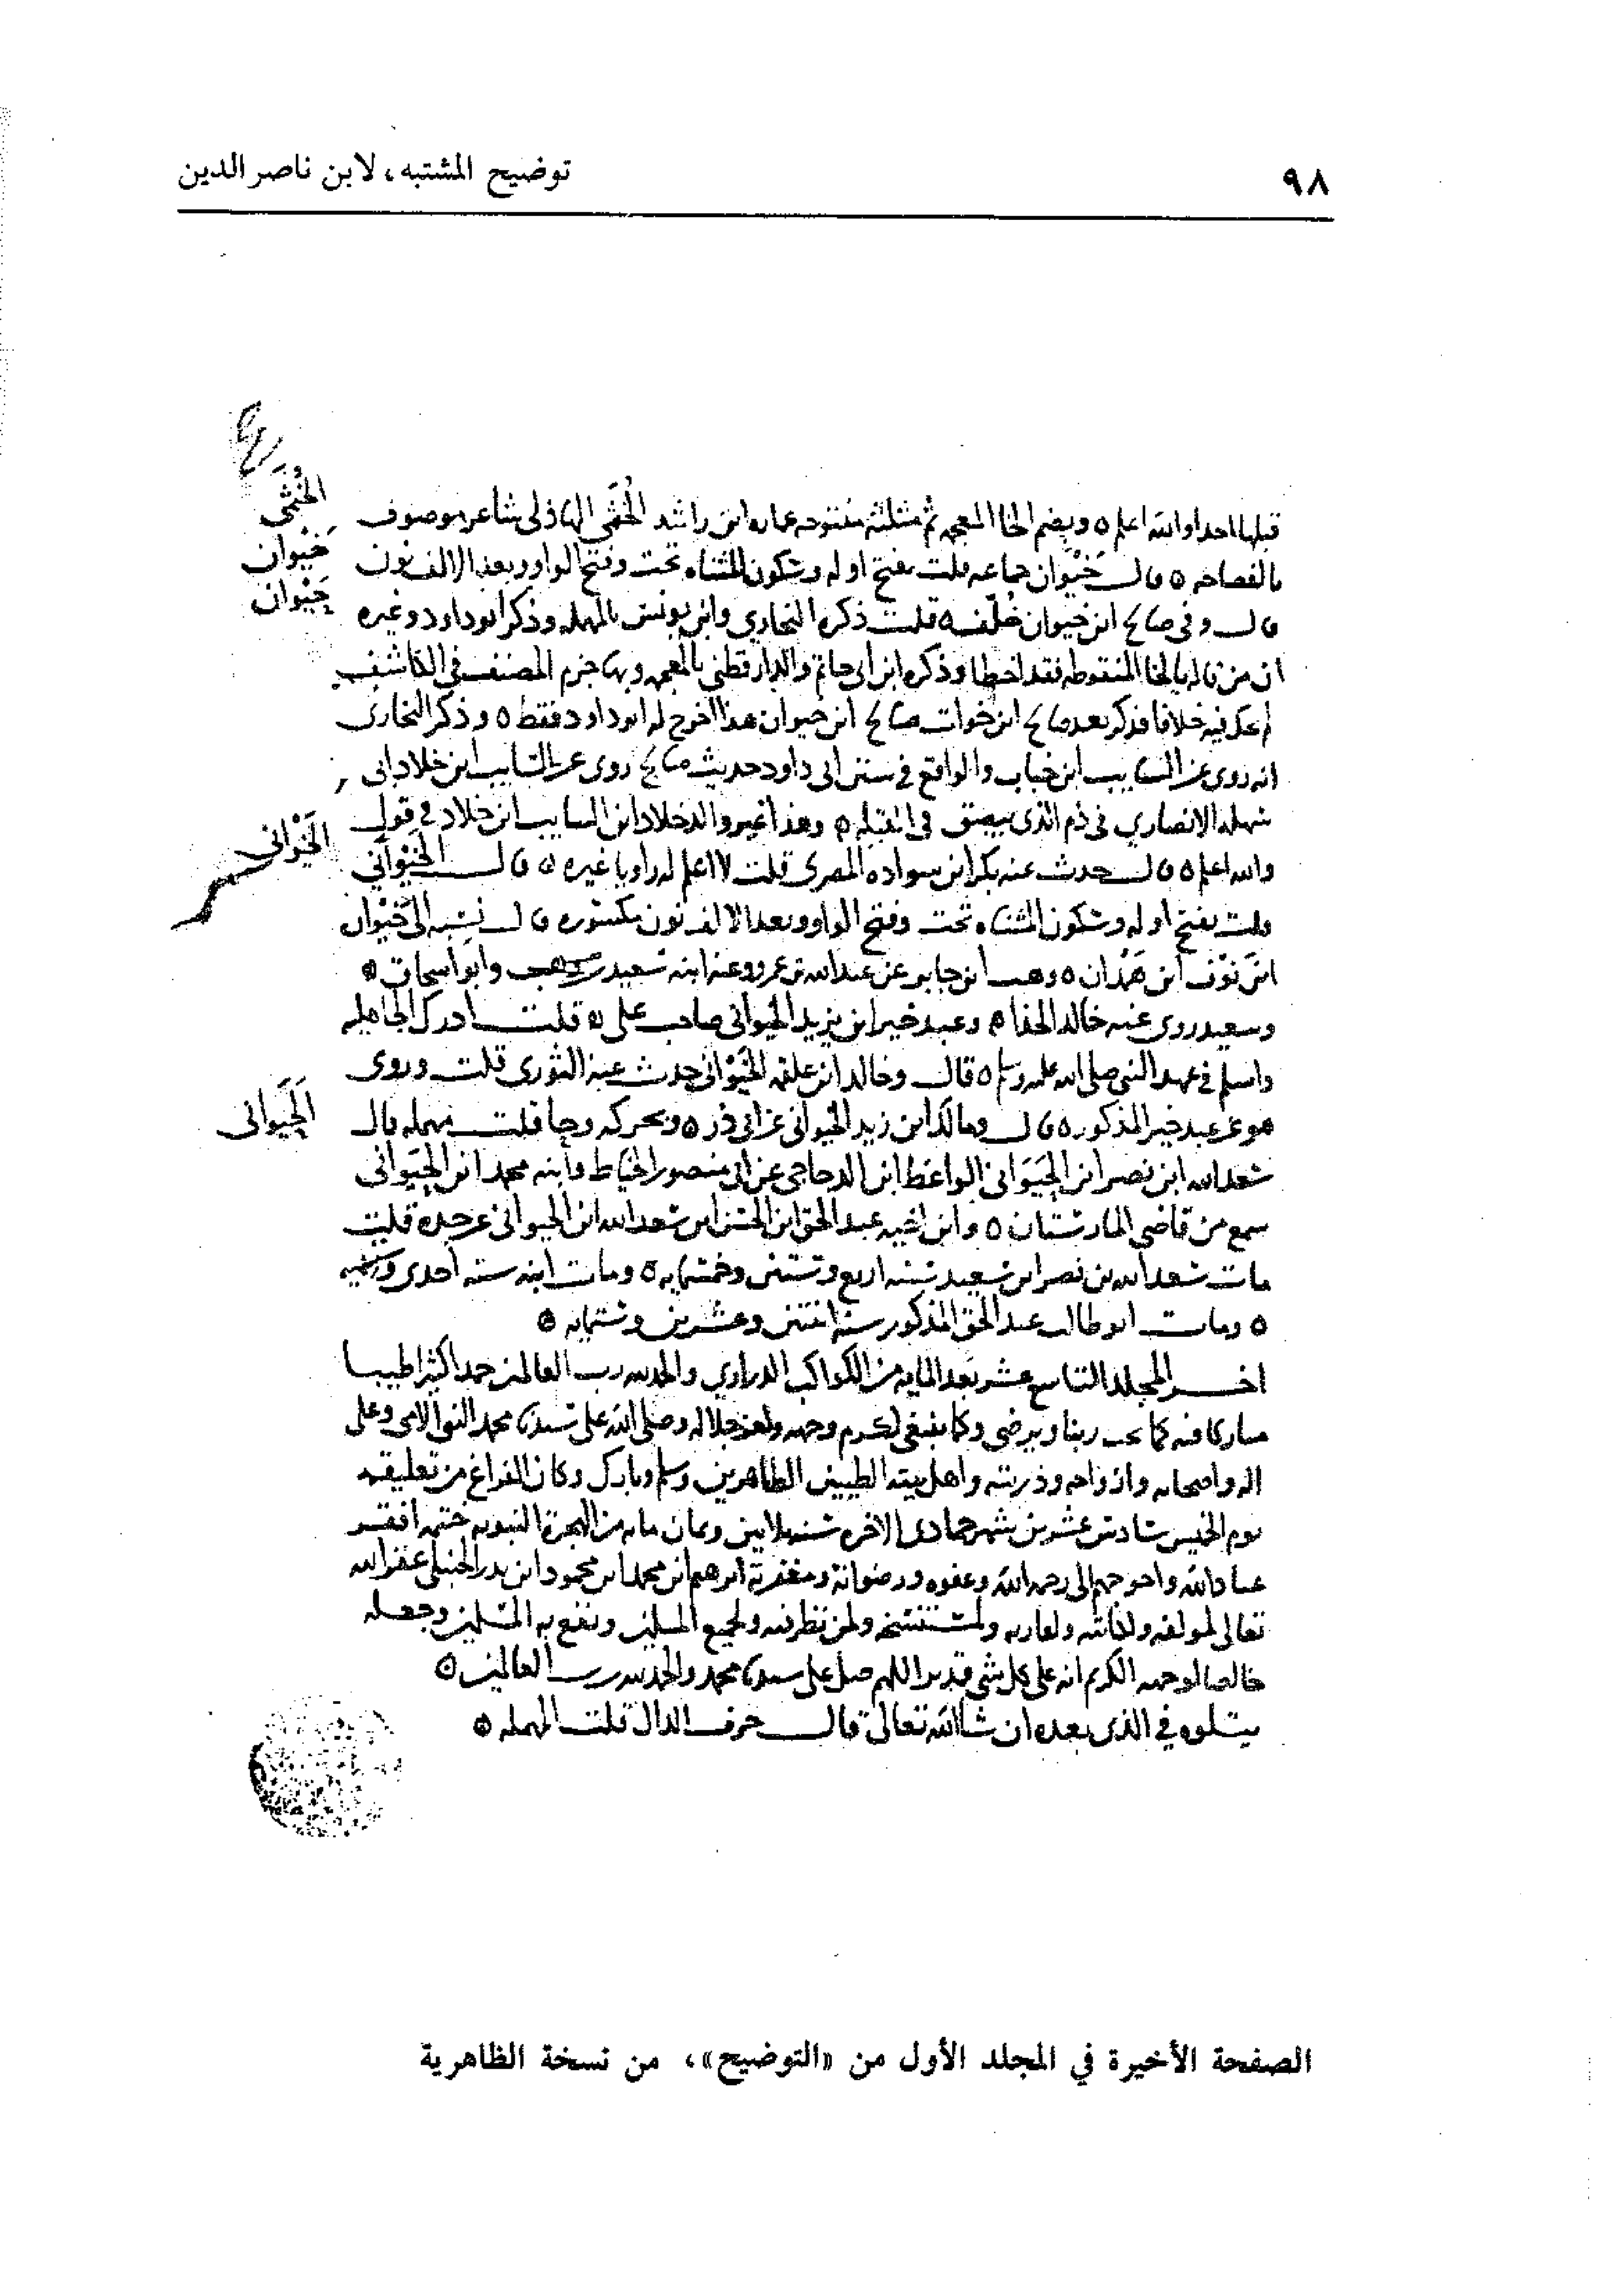 ٩٨
توضيح المشتبه، لابن ناصر الدين
قبلها احد او الله اعلم ٥ وبضم الخا المعجمه ثم مثلثه مفتوحه عماره ابن راشد الخُثَمى شاعر موصوف
الخُثَمى
بالفصاحه ٥ قال خَيْوَان جماعه قلت بفتح اوله وسكون المثناه تحت وفتح الواو وبعد الالف نون
خَيْوان
قال وفى صالح ابن خيوان خُلْف ٥ قلت ذكره البخاري وابن يونس بالمهمله وذكر ابو داود وغيره
حَيْوان
ان من قاله بالخا المنقوطه فقد اخطا وذكره ابن ابى حاتم والدارقطنى بالمعجمه وبها جزم المصنف فى الكاشف
لم يحك فيه خلافا فذكر بعد صالح ابن خوات صالح ابن خيوان هذا اخرج له ابو داود فقط ٥ وذكر البخارى
انه روى عن السايب ابن خباب والواقع فى سنن ابى داود حديث صالح روى عن السايب ابن خلاد ابى
سهله الانصاري فى ذم الذى يبصق فى القبله ٥ وهذا غير والد خلاد ابن السايب ابن خلاد فى قول
والله اعلم ٥ قال حدث عنه بكر ابن سواده المصرى قلت لا اعلم له راويا غيره ٥ قال الخَيْوَاني
الخَيْوَانى
قلت بفتح اوله وسكون المثناه تحت وفتح الواو وبعد الالف نون مكسوره قال نسبه الى خَيْوان
ابن نَوْف ابن هَمْدان ٥ وهب ابن جابر عن عبد الله بن عمرو وعنه ابنه سعيد وابو اسحاق ٥
وسعيد روى عنه خالد الحذا ٥ وعبد خير ابن يزيد الخيوانى صاحب على ٥ قلت ادرك الجاهليه
واسلم فى عهد النبى صلى الله عليه وسلم ٥ قال وخالد ابن علقمه الخَيْوانى حدث عنه الثورى قلت وروى
هو عن عبد خير المذكور ٥ قال ومالك ابن زيد الخيوانى عن ابى ذر ٥ وبحركه وحا قلت مهمله قال
الحَيَوانى
سعد الله ابن نصر ابن الحَيَوَانى الواعظ ابن الدجاجى عن ابى منصور الخياط وابنه محمد ابن الحَيَوانى
سمع من قاضى المارستان ٥ وابن اخيه عبد الحق ابن الحسن ابن سعد الله ابن الحيوانى عن جده قلت
مات سعد الله بن نصر ابن سعيد سنه اربع وستين وخمسمايه ٥ ومات ابنه سنه احدى وستميه
٥ ومات ابو طالب عبد الحق المذكور سنه اثنتين وعشرين وستمايه ٥
اخر المجلد التاسع عشر بعد المايه من الكواكب الدراري والحمد لله رب العالمين حمدا كثيرا طيبا
مباركا فيه كما يحب ربنا ويرضى وكما ينبغى لكرم وجهه ولعز جلاله وصلى الله على سيدنا محمد النبى الامى وعلى
اله واصحابه وازواجه وذريته واهل بيته الطيبين الطاهرين وسلم وبارك وكان الفراغ من تعليقه
يوم الخميس سادس عشرين شهر جمادى الاخره سنه ثلاثين وثمان مايه من الهجرة النبويه ختمه افقر
عباد الله واحوجهم الى رحمه الله وعفوه ورضوانه ومغفرته ابرهيم ابن محمد ابن محمود ابن بدر الحنبلى عفر الله
تعالى لمولفه ولكاتبه ولقاريه ولمستنسخه ولمن نظر فيه ولجميع المسلمين ونفع به المسلمين وجعله
خالصا لوجهه الكريم انه على كل شى قدير اللهم صل على سيدنا محمد والحمد لله رب العالمين ٥
يتلوه في الذى بعده ان شا الله تعالى قال حرف الدال قلت المهمله ٥
الصفحة الأخيرة في المجلد الأول من «التوضيح»، من نسخة الظاهرية